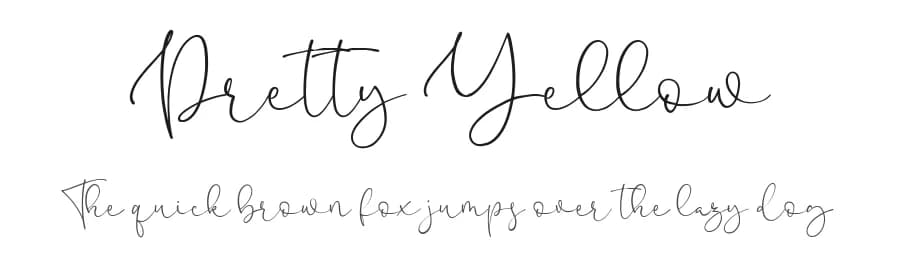 Pretty Yellow
The quick brown fox jumps over the lazy dog